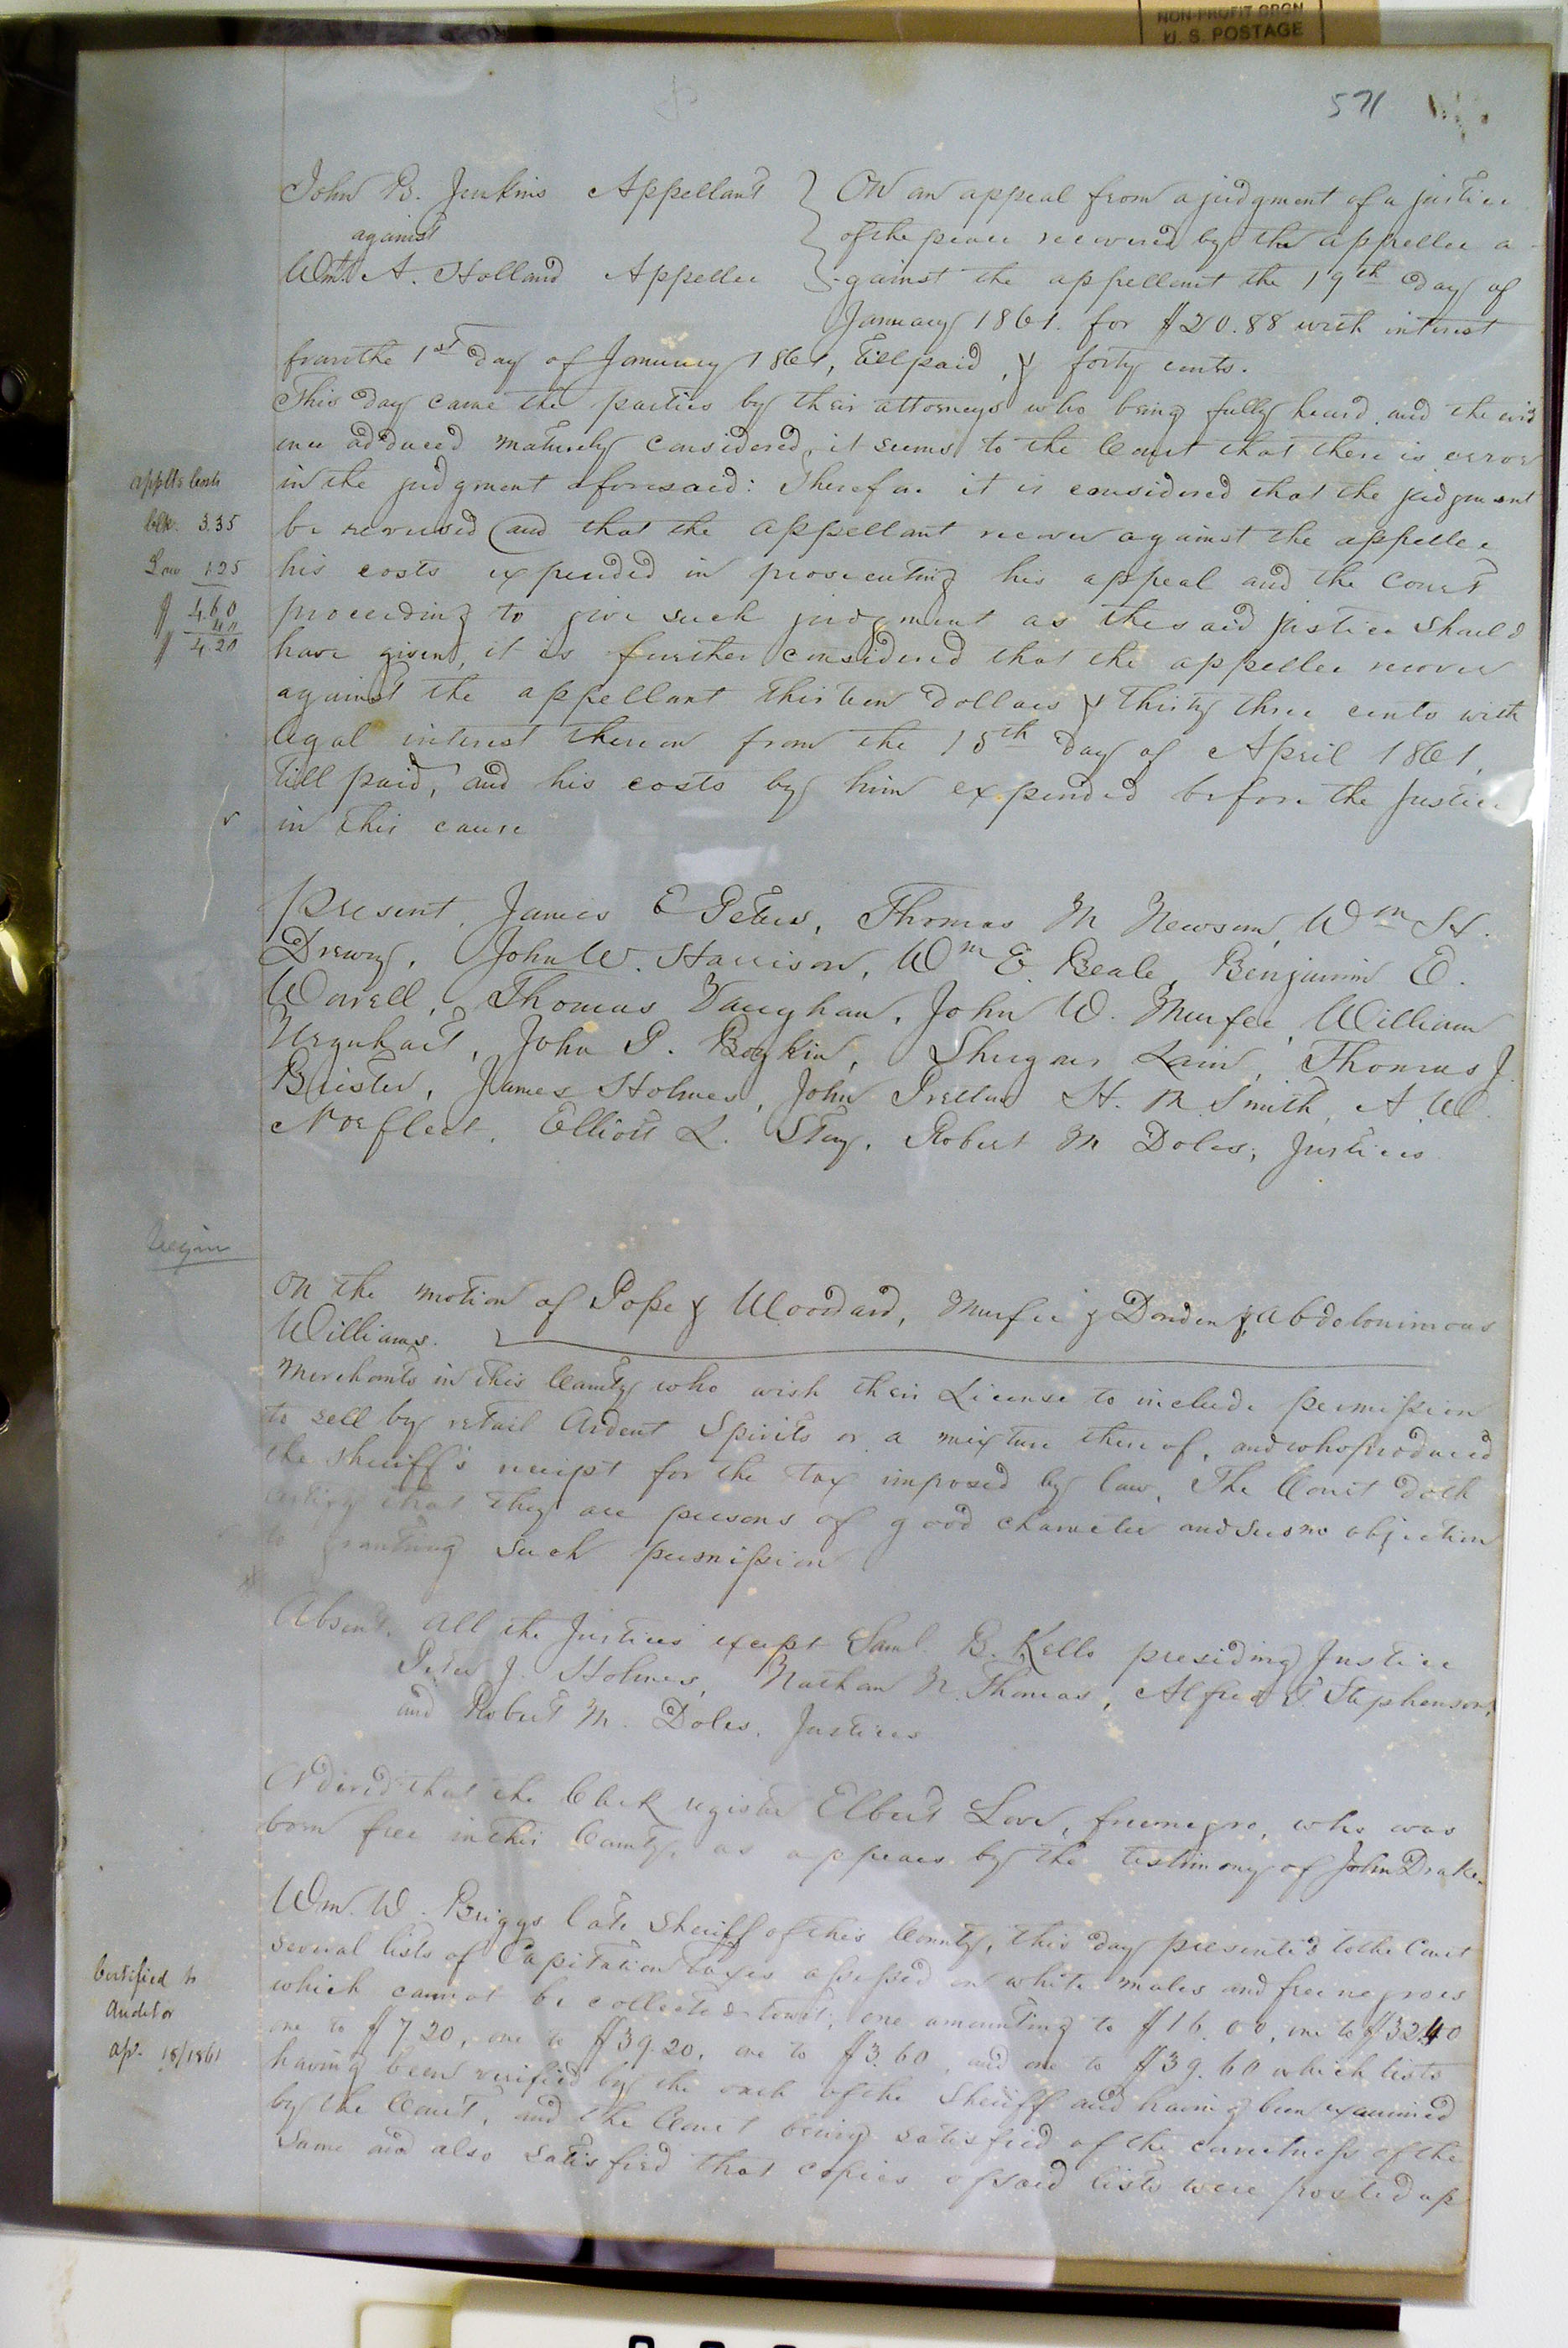 NON-PROFIT ORGN
U. S. POSTAGE
571
John B. Jenkins Appellant } On an appeal from a judgment of a justice
against } of the peace recovered by the appellee a
Wm. A. Holland Appellee } -gainst the appellant the 19th day of
January 1861. for $20.88 with interest
from the 1st day of January 1861, till paid, & forty cents.
This day came the parties by their attorneys who being fully heard and the evid
ence adduced maturely considered, it seems to the Court that there is error
in the judgment aforesaid: Therefore it is considered that the judgment
be reversed and that the appellant recover against the appellee
his costs expended in prosecuting his appeal and the Court
proceeding to give such judgment as the said justice should
have given, it is further considered that the appellee recover
against the appellant thirteen dollars & thirty three cents with
legal interest thereon from the 15th day of April 1861,
till paid, and his costs by him expended before the Justice
in this cause
applts costs
clk. 3.35
Law 1.25
$ 4.60
40
$ 4.20
Present, James E Peters, Thomas M Newsum, Wm H.
Drewry, John W. Harrison, Wm E. Beale, Benjamin E.
Worell, Thomas Vaughan, John W. Murfee, William
Urquhart, John P. Boykin, Shugars Lain, Thomas J.
Brister, James Holmes, John Pretlow H. M. Smith, A. W.
Norfleet, Elliott L. Story, Robert M Doles, Justices
begin
On the motion of Pope & Woodard, Murfee & Darden & Abdolonimous
Williams.
Merchants in this County who wish their License to include permission
to sell by retail Ardent Spirits or a mixture thereof, and who produced
the sheriff's receipt for the tax imposed by law, The Court doth
certify that they are persons of good character and sees no objection
to granting such permission
Absent, all the Justices except Saml. B. Kello presiding Justice
Peter J. Holmes, Nathan N. Thomas, Alfred T. Stephenson,
and Robert M. Doles. Justices
Ordered that the Clerk register Elbert Love, free negro, who was
born free in this County, as appears by the testimony of John Drake.
Wm. W. Briggs late Sheriff of this County, this day presented to the Court
several lists of Capitation Taxes assessed on white males and free negroes
which cannot be collected towit; one amounting to $16.00, one to $32.40
one to $7.20, one to $39.20, one to $3.60, and one to $39.60 which lists
having been verified by the oath of the Sheriff and having been examined
by the Court, and the Court being satisfied of the correctness of the
same and also satisfied that copies of said lists were posted up
Certified to
Auditor
Ap. 18/1861